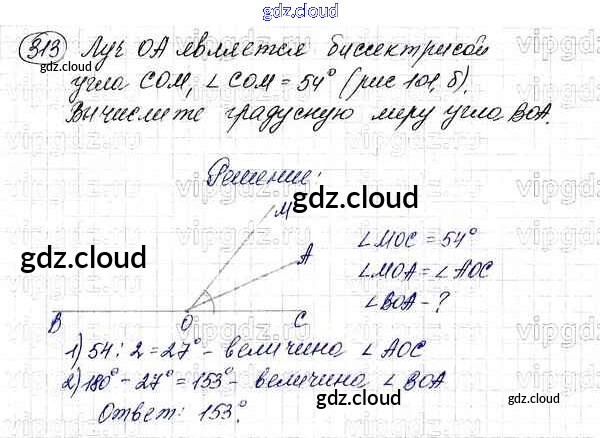 gdz.cloud
313 Луч ОА является биссектрисой
угла СОМ, ∠ СОМ = 54° (рис 101, б).
Вычислите градусную меру угла ВОА.
Решение:
gdz.cloud
М
gdz.cloud
А
∠МОС = 54°
∠МОА = ∠АОС
∠ВОА - ?
В О С
1) 54 : 2 = 27° - величина ∠ АОС
2) 180° - 27° = 153° - величина ∠ ВОА
Ответ: 153°.
gdz.cloud
gdz.cloud